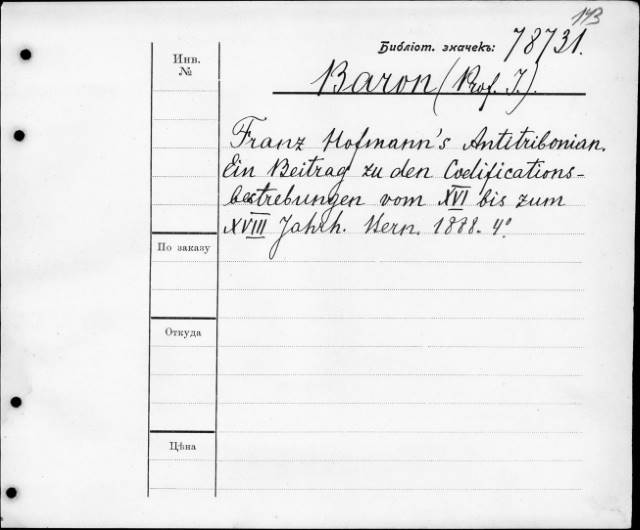 143
Библіот. значекъ: 78731.
Инв.
№
Baron (Prof. J.).
Franz Hofmann's Antitribonian.
Ein Beitrag zu den Codifications-
bestrebungen vom XVI bis zum
XVIII Jahrh. Bern. 1888. 4°
По заказу
Откуда
Цѣна